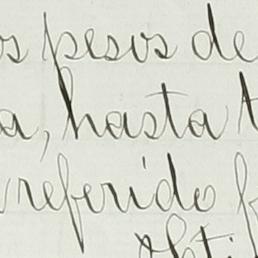 pesos de
a, hasta
referido